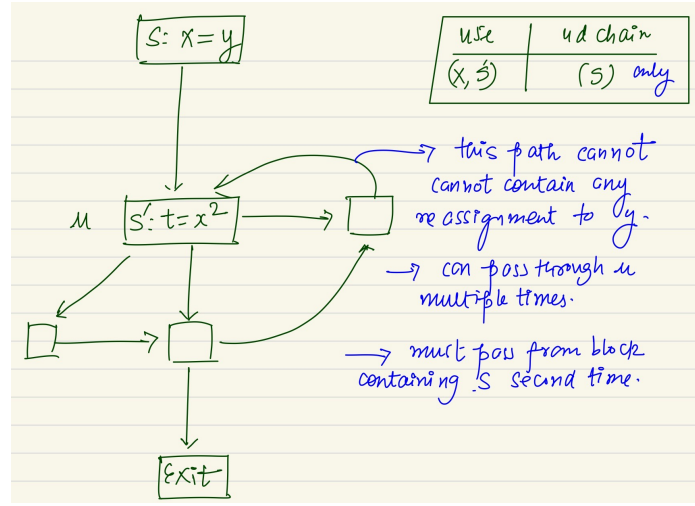 S: x = y
use | ud chain
(x, S') | (S) only
→ this path cannot
cannot contain any
reassignment to y.
u
S': t = x²
→ can pass through u
multiple times.
→ must pass from block
containing S second time.
Exit